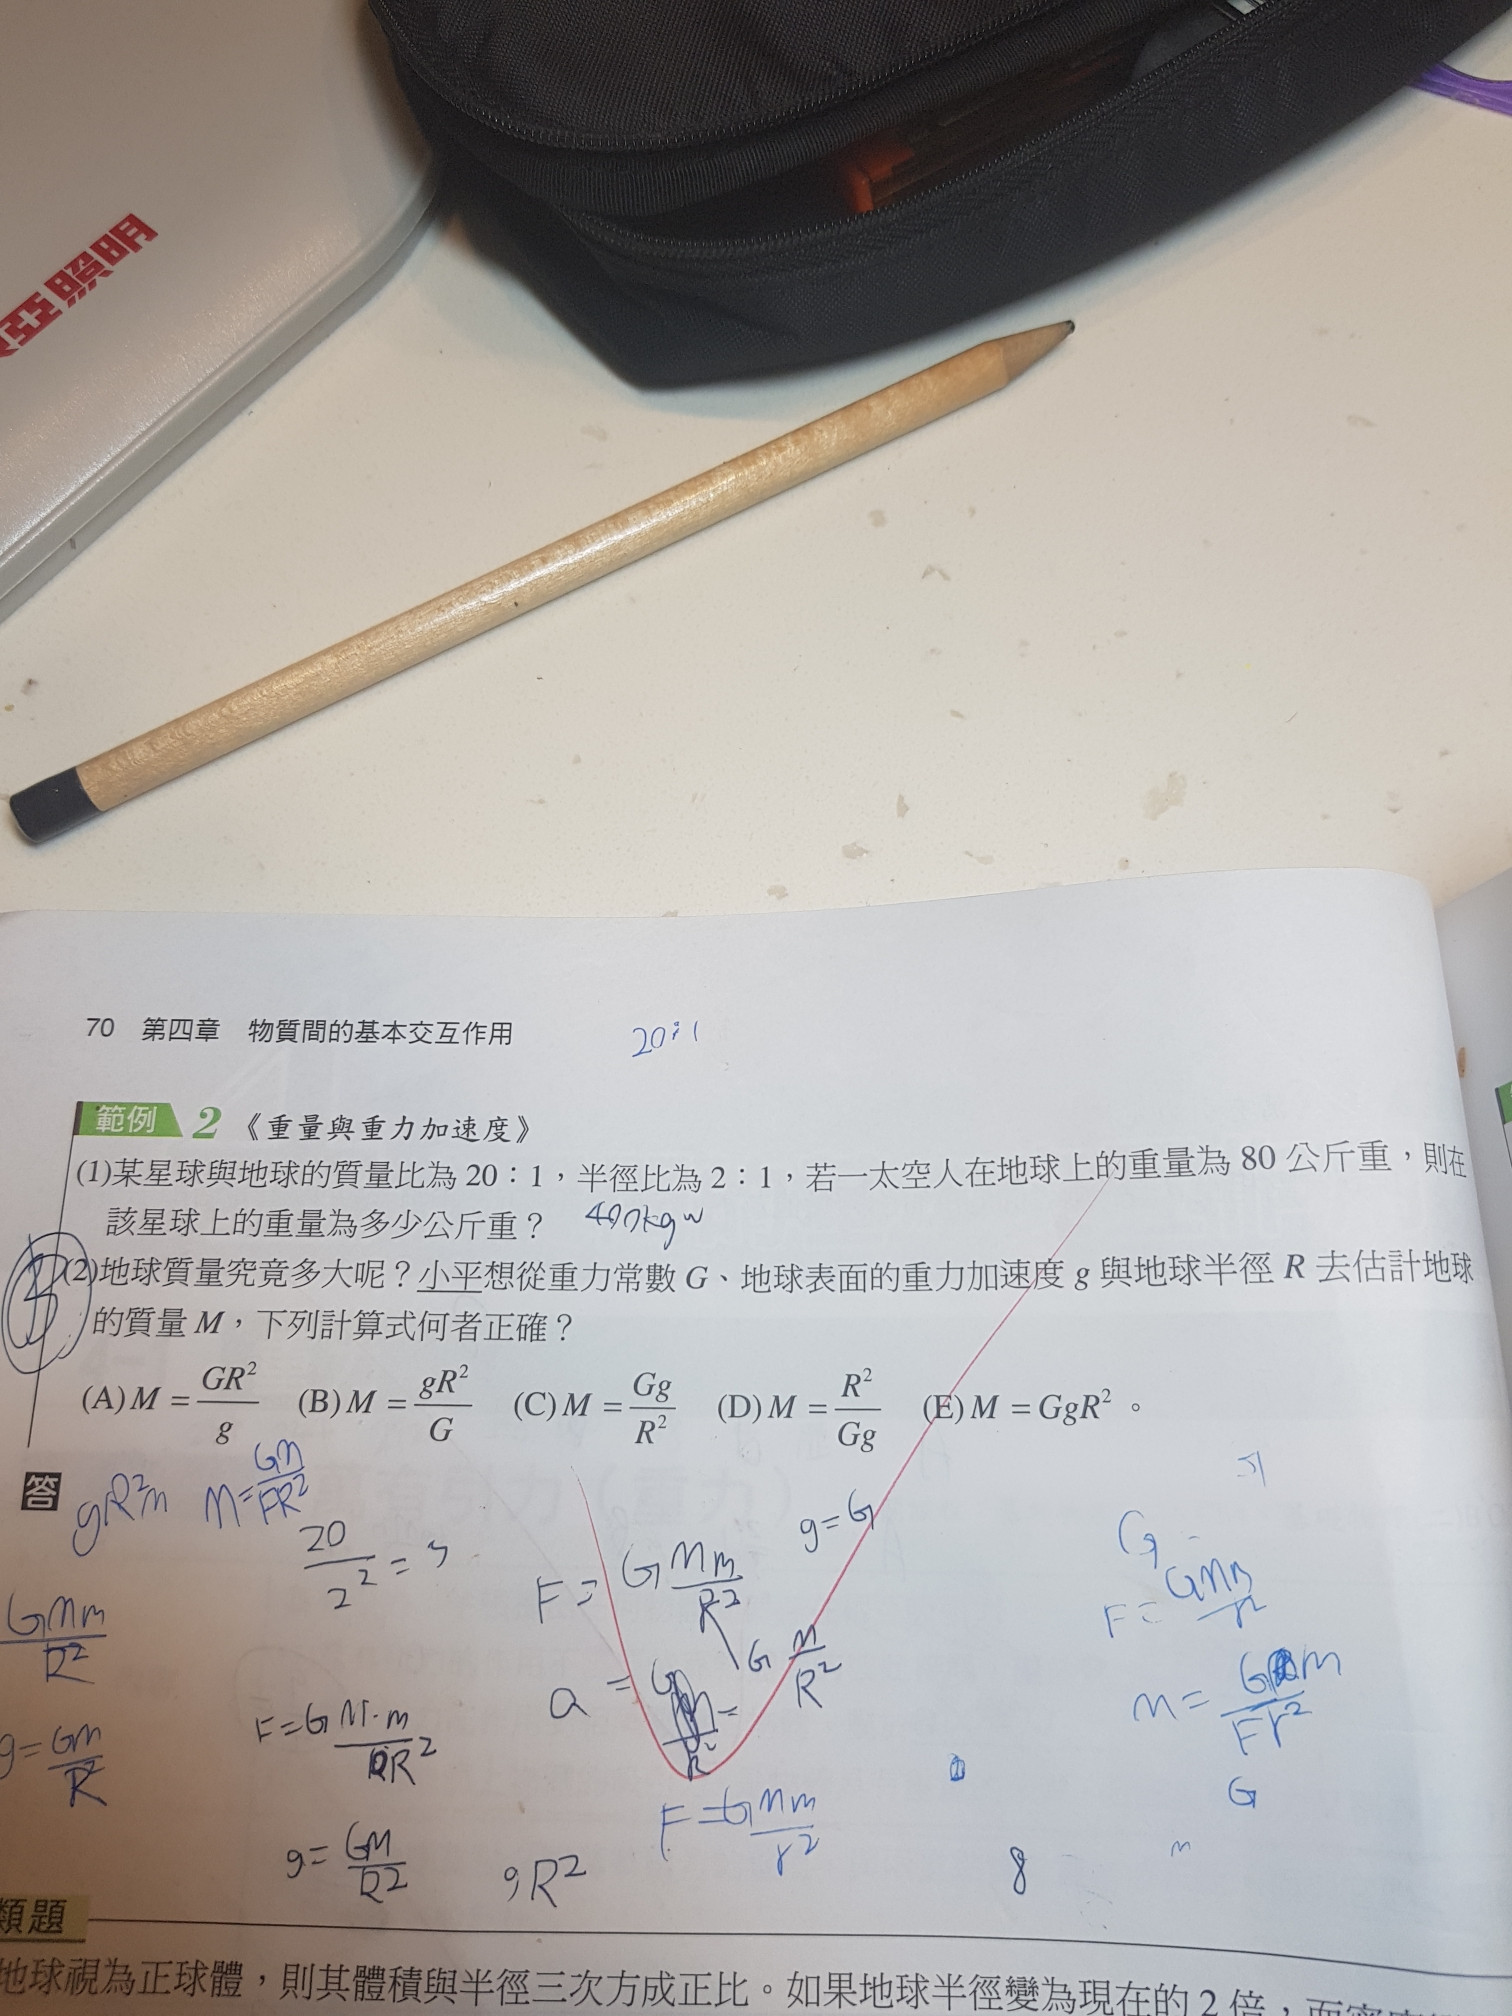 亞照明
70 第四章 物質間的基本交互作用
20:1
範例 2 《重量與重力加速度》
(1)某星球與地球的質量比為 20：1，半徑比為 2：1，若一太空人在地球上的重量為 80 公斤重，則在
該星球上的重量為多少公斤重？ 400kgw
(2)地球質量究竟多大呢？小平想從重力常數 G、地球表面的重力加速度 g 與地球半徑 R 去估計地球
的質量 M，下列計算式何者正確？
(A) M = GR²/g (B) M = gR²/G (C) M = Gg/R² (D) M = R²/Gg (E) M = GgR²。
答
gR²m M = Gm/FR²
20/2² = 5
F = G Mm/R²
g = G
G
F = GMm/r²
GMm/R²
a = G
G M/R²
M = G m/Fr²
g = GM/R
F = G M·m/R²
F = G Mm/r²
G
g = GM/R²
gR²
8
類題
地球視為正球體，則其體積與半徑三次方成正比。如果地球半徑變為現在的 2 倍，而密度